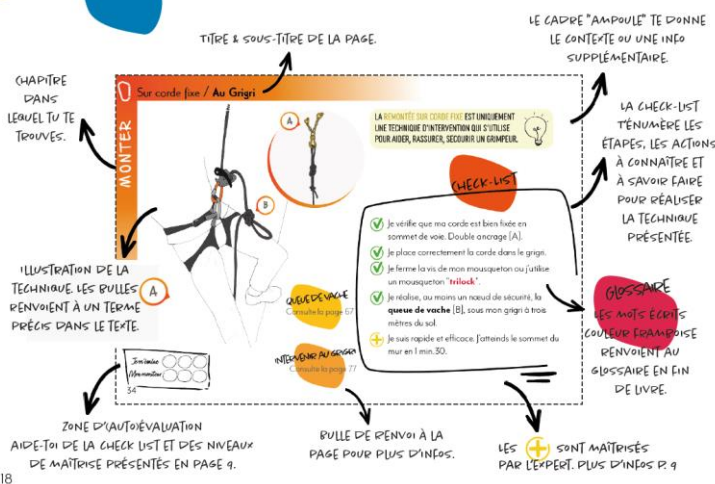 LE CADRE "AMPOULE" TE DONNE
LE CONTEXTE OU UNE INFO
SUPPLÉMENTAIRE.
TITRE & SOUS-TITRE DE LA PAGE.
CHAPITRE
DANS
LEQUEL TU TE
TROUVES.
Sur corde fixe / Au Grigri
MONTER
A
B
LA REMONTÉE SUR CORDE FIXE EST UNIQUEMENT
UNE TECHNIQUE D'INTERVENTION QUI S'UTILISE
POUR AIDER, RASSURER, SECOURIR UN GRIMPEUR.
LA CHECK-LIST
T'ÉNUMÈRE LES
ÉTAPES, LES ACTIONS
À CONNAÎTRE ET
À SAVOIR FAIRE
POUR RÉALISER
LA TECHNIQUE
PRÉSENTÉE.
CHECK-LIST
Je vérifie que ma corde est bien fixée en
sommet de voie. Double ancrage [A].
Je place correctement la corde dans le grigri.
Je ferme la vis de mon mousqueton ou j'utilise
un mousqueton "trilock".
Je réalise, au moins un nœud de sécurité, la
queue de vache [B], sous mon grigri à trois
mètres du sol.
Je suis rapide et efficace. J'atteinds le sommet du
mur en 1 min.30.
ILLUSTRATION DE LA
TECHNIQUE. LES BULLES
RENVOIENT À UN TERME
PRÉCIS DANS LE TEXTE.
A
QUEUE DE VACHE
Consulte la page 67
INTERVENIR AU GRIGRI
Consulte la page 77
GLOSSAIRE
LES MOTS ÉCRITS
COULEUR FRAMBOISE
RENVOIENT AU
GLOSSAIRE EN FIN
DE LIVRE.
34
ZONE D'(AUTO)ÉVALUATION
AIDE-TOI DE LA CHECK LIST ET DES NIVEAUX
DE MAÎTRISE PRÉSENTÉS EN PAGE 9.
BULLE DE RENVOI À LA
PAGE POUR PLUS D'INFOS.
LES + SONT MAÎTRISÉS
PAR L'EXPERT. PLUS D'INFOS P. 9
18